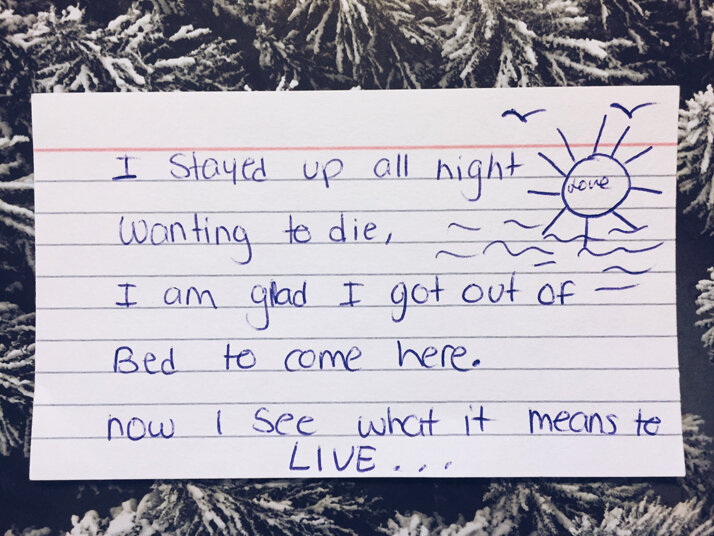 I stayed up all night
Love
wanting to die,
I am glad I got out of
Bed to come here.
now I see what it means to
LIVE...